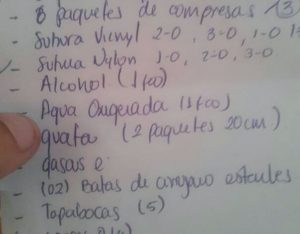 - 8 paquetes de compresas (3
- Sutura Vicryl 2-0, 3-0, 1-0
- Sutura Nylon 1-0, 2-0, 3-0
- Alcohol (1 fco)
- Agua Oxigenada (1 fco)
- guata (2 paquetes 20cm)
- gasas e
- (02) Batas de cirujano esteriles
- Tapabocas (5)